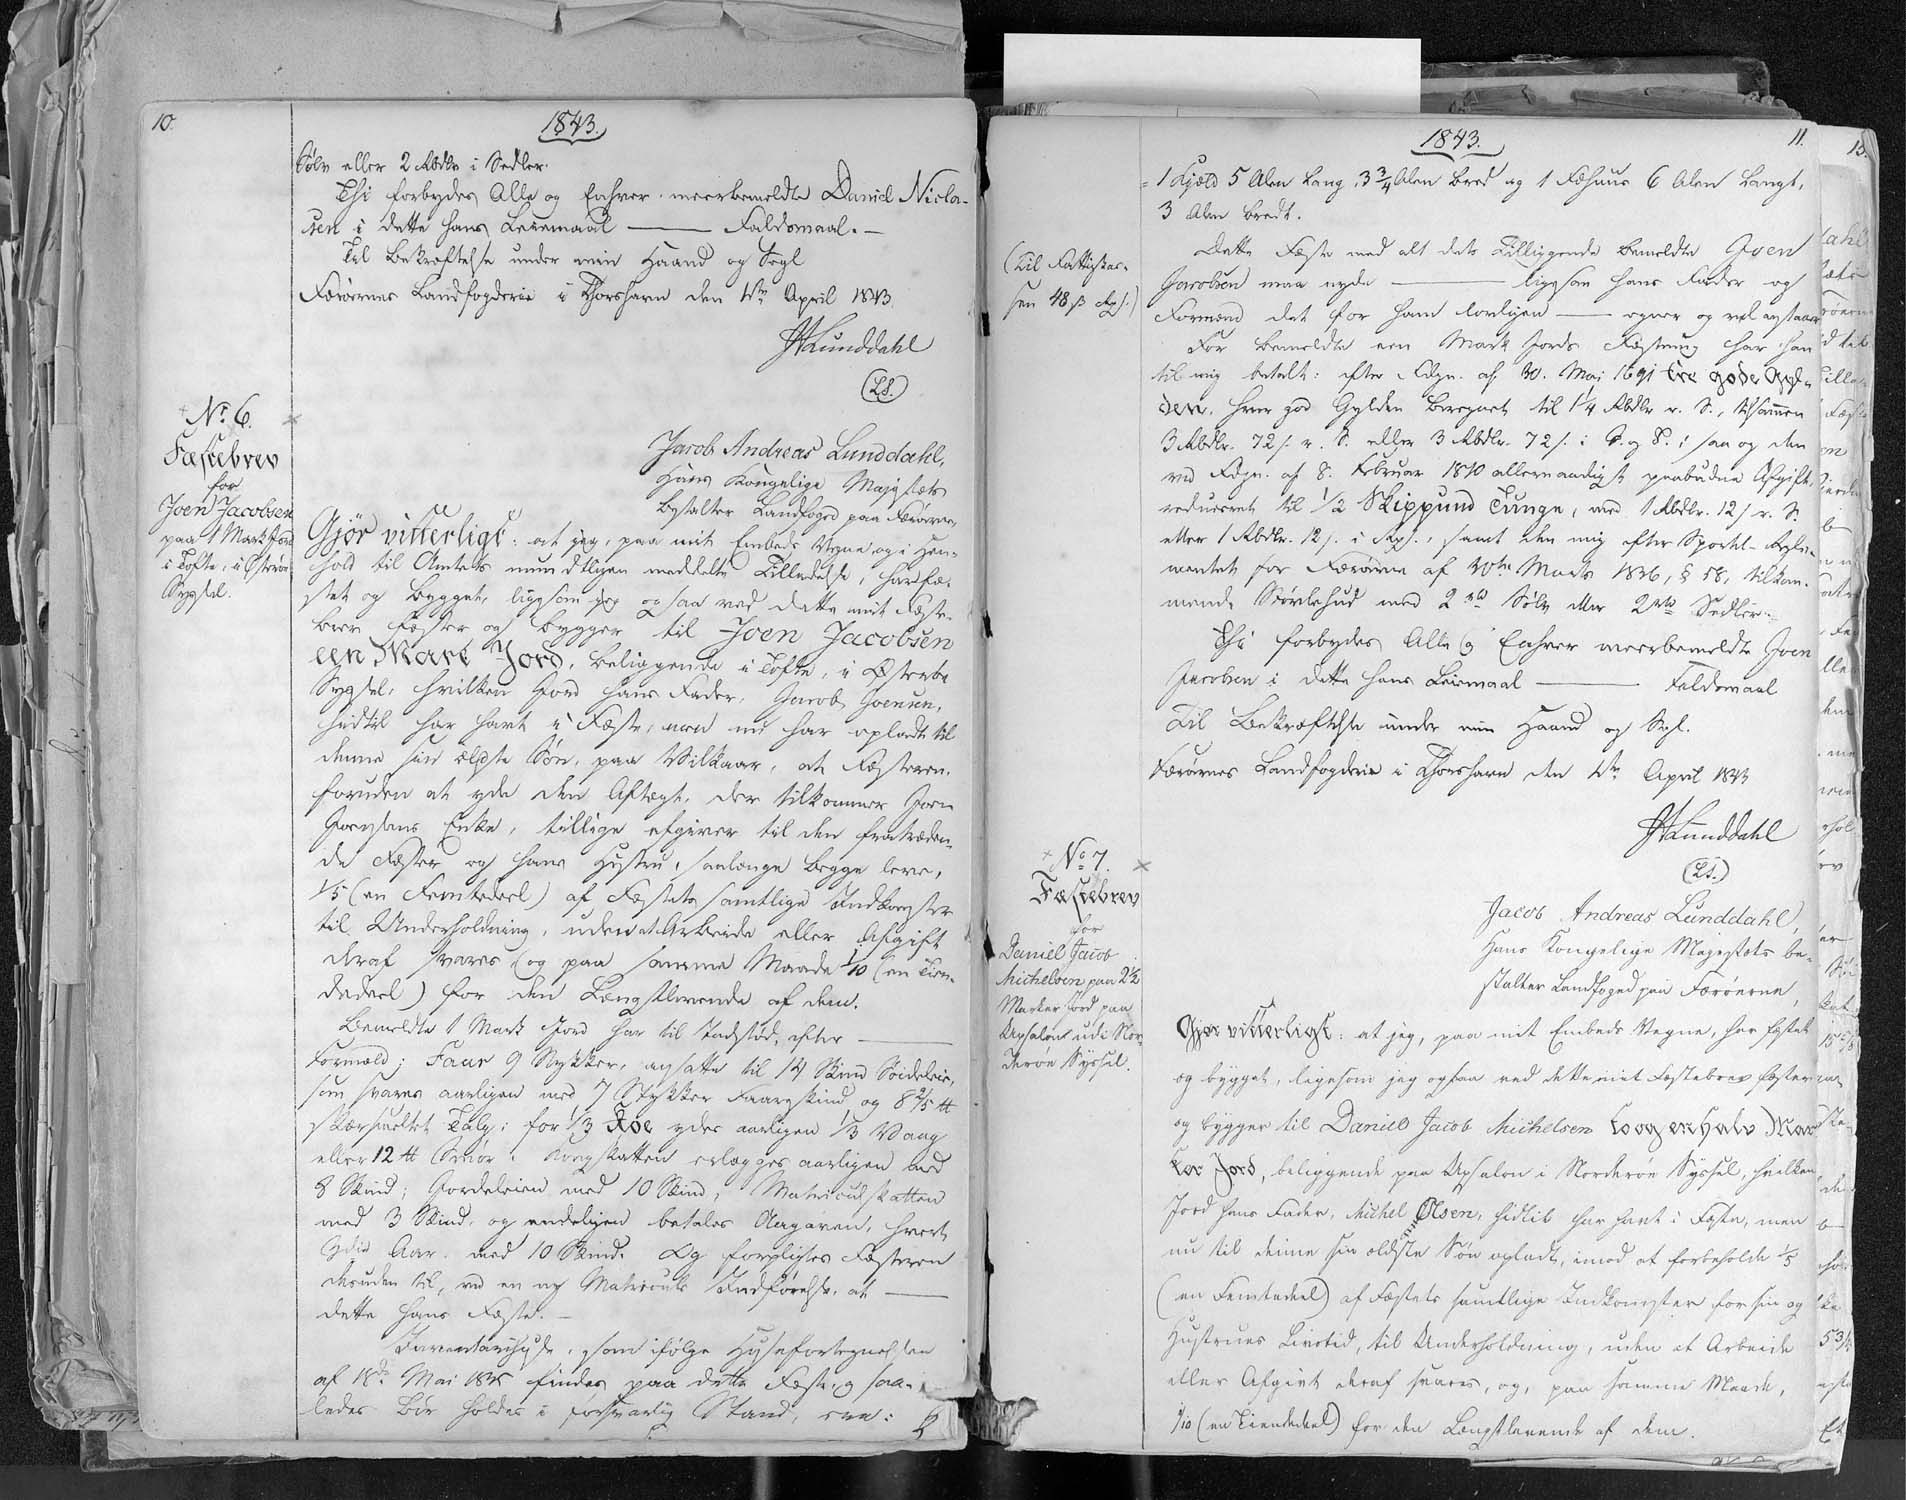 10.
1843.
Sølv eller 2 Rbdlr i Sedler.
Thi forbydes Alle og Enhver meerbemeldte Daniel Nicla-
sen i dette hans Leiemaal ——— Faldsmaal. —
Til Bekræftelse under min Haand og Segl
Færøernes Landfogderie i Thorshavn den April 1843.
JALunddahl
(LS.)
No 6.
Fæstebrev
for
Joen Jacobsen
paa 1 Mark Jord
i Tofte, i Østerøe
Syssel.
Jacob Andreas Lunddahl,
Hans Kongelige Majestæts
bestalter Landfoged paa Færøerne,
Gjør vitterligt: at jeg, paa mit Embeds Vegne og i Hen-
hold til Amtets mundtligen meddelte Tilladelse, har fæ-
stet og bygget, ligesom jeg ogsaa ved dette mit Fæste-
brev fæster og bygger til Joen Jacobsen
een Mark Jord, beliggende i Tofte, i Østerøe
Syssel, hvilken Jord hans Fader, Jacob Joensen,
hidtil har havt i Fæste, men nu har opladt til
denne sin ældste Søn, paa Vilkaar, at Fæsteren,
foruden at yde den Aftægt, der tilkommer Joen
Enke, tillige afgiver til den fratræden-
de Fæster og hans Hustru, saalænge begge leve,
1/5 (en Femtedeel) af Fæstets samtlige Indkomster
til Underholdning, uden at Arbeide eller Afgift
deraf svares, og paa samme Maade 1/10 (en Tien-
dedeel) for den Længstlevende af dem.
Bemeldte 1 Mark Jord har til Indstød, efter ———
Formeld; Faar 9 Stykker, ansatte til 14 Skind Søideleie,
som svares aarligen med 7 Stykker Faareskind og 8 2/5 ℔
skiærsmeltet Talg; for 1/3 Koe ydes aarligen 1/3 Vaag
eller 12 ℔ Smør; Kongskatten erlægges aarligen med
8 Skind; Jordeleien med 10 Skind; Matriculskatten
med 3 Skind, og endeligen betales Aagaven, hvert
3die Aar med 10 Skind. Og forpligtes Fæsteren
desuden til, ved en ny Matriculs Indførelse, at ———
dette hans Fæste. —
Inventariihuse, som ifølge Husefortegnelsen
af 18de Mai findes paa dette Fæste og saa-
ledes bør holdes i forsvarlig Stand, ere:
11.
1843.
1 Hjæld 5 Alen lang, 3 3/4 Alen bred og 1 Fæhuus 6 Alen langt,
3 Alen bredt.
(Til Fattigkas-
sen 48 ß
Dette Fæste med alt dets Tilliggende bemeldte Joen
Jacobsen maa nyde ——— ligesom hans Fader og
Formænd det for ham lovligen ——— egner og vel anstaaer
For bemeldte een Mark Jords Fæstning har han
til mig betalt: efter Fdgn. af 30. Mai 1691 tre gode Gyl-
den, hver god Gylden beregnet til 1 1/4 Rbdlr r. S., tilsammen
3 Rbdlr. 72 ß. r. S. eller 3 Rbdlr. 72 ß. i S. og T.; saa og den
ved Fdgn. af 8. Februar 1810 allernaadigst paabudne Afgift,
reduceret til 1/2 Skippund Tunge, med 1 Rbdlr. 12 ß r. S.
eller 1 Rbdlr. 12 ß. i samt den mig efter Sportel-Regle-
mentet for Færøerne af Marts 1836, § 58, tilkom-
mende Støvlehud med 2 Rbd Sølv eller 2 Rbd Sedler.
Thi forbydes Alle og Enhver meerbemeldte Joen
Jacobsen i dette hans Leiemaal ——— Faldsmaal
Til Bekræftelse under min Haand og Segl.
Færøernes Landfogderie i Thorshavn den April 1843
JALunddahl
(LS.)
No 7.
Fæstebrev
for
Daniel Jacob
Michelsen paa 2 1/2
Marker Jord paa
Upsalon udi Nor-
derøe Syssel.
Jacob Andreas Lunddahl,
Hans Kongelige Majestæts be-
stalter Landfoged paa Færøerne,
Gjør vitterligt: at jeg, paa mit Embeds Vegne, har fæstet
og bygget, ligesom jeg ogsaa ved dette mit Fæstebrev fæster
og bygger til Daniel Jacob Michelsen to og en halv Mar-
ker Jord, beliggende paa Upsalon i Norderøe Syssel, hvilken
Jord hans Fader, Michel Olsen, hidtil har havt i Fæste, men
nu til denne sin ældste Søn opladt, imod at forbeholde 1/5
(en Femtedeel) af Fæstets samtlige Indkomster for sin og
Hustrues Livstid, til Underholdning, uden at Arbeide
eller Afgivt deraf svares, og, paa samme Maade,
1/10 (en Tiendedeel) for den Længstlevende af dem.